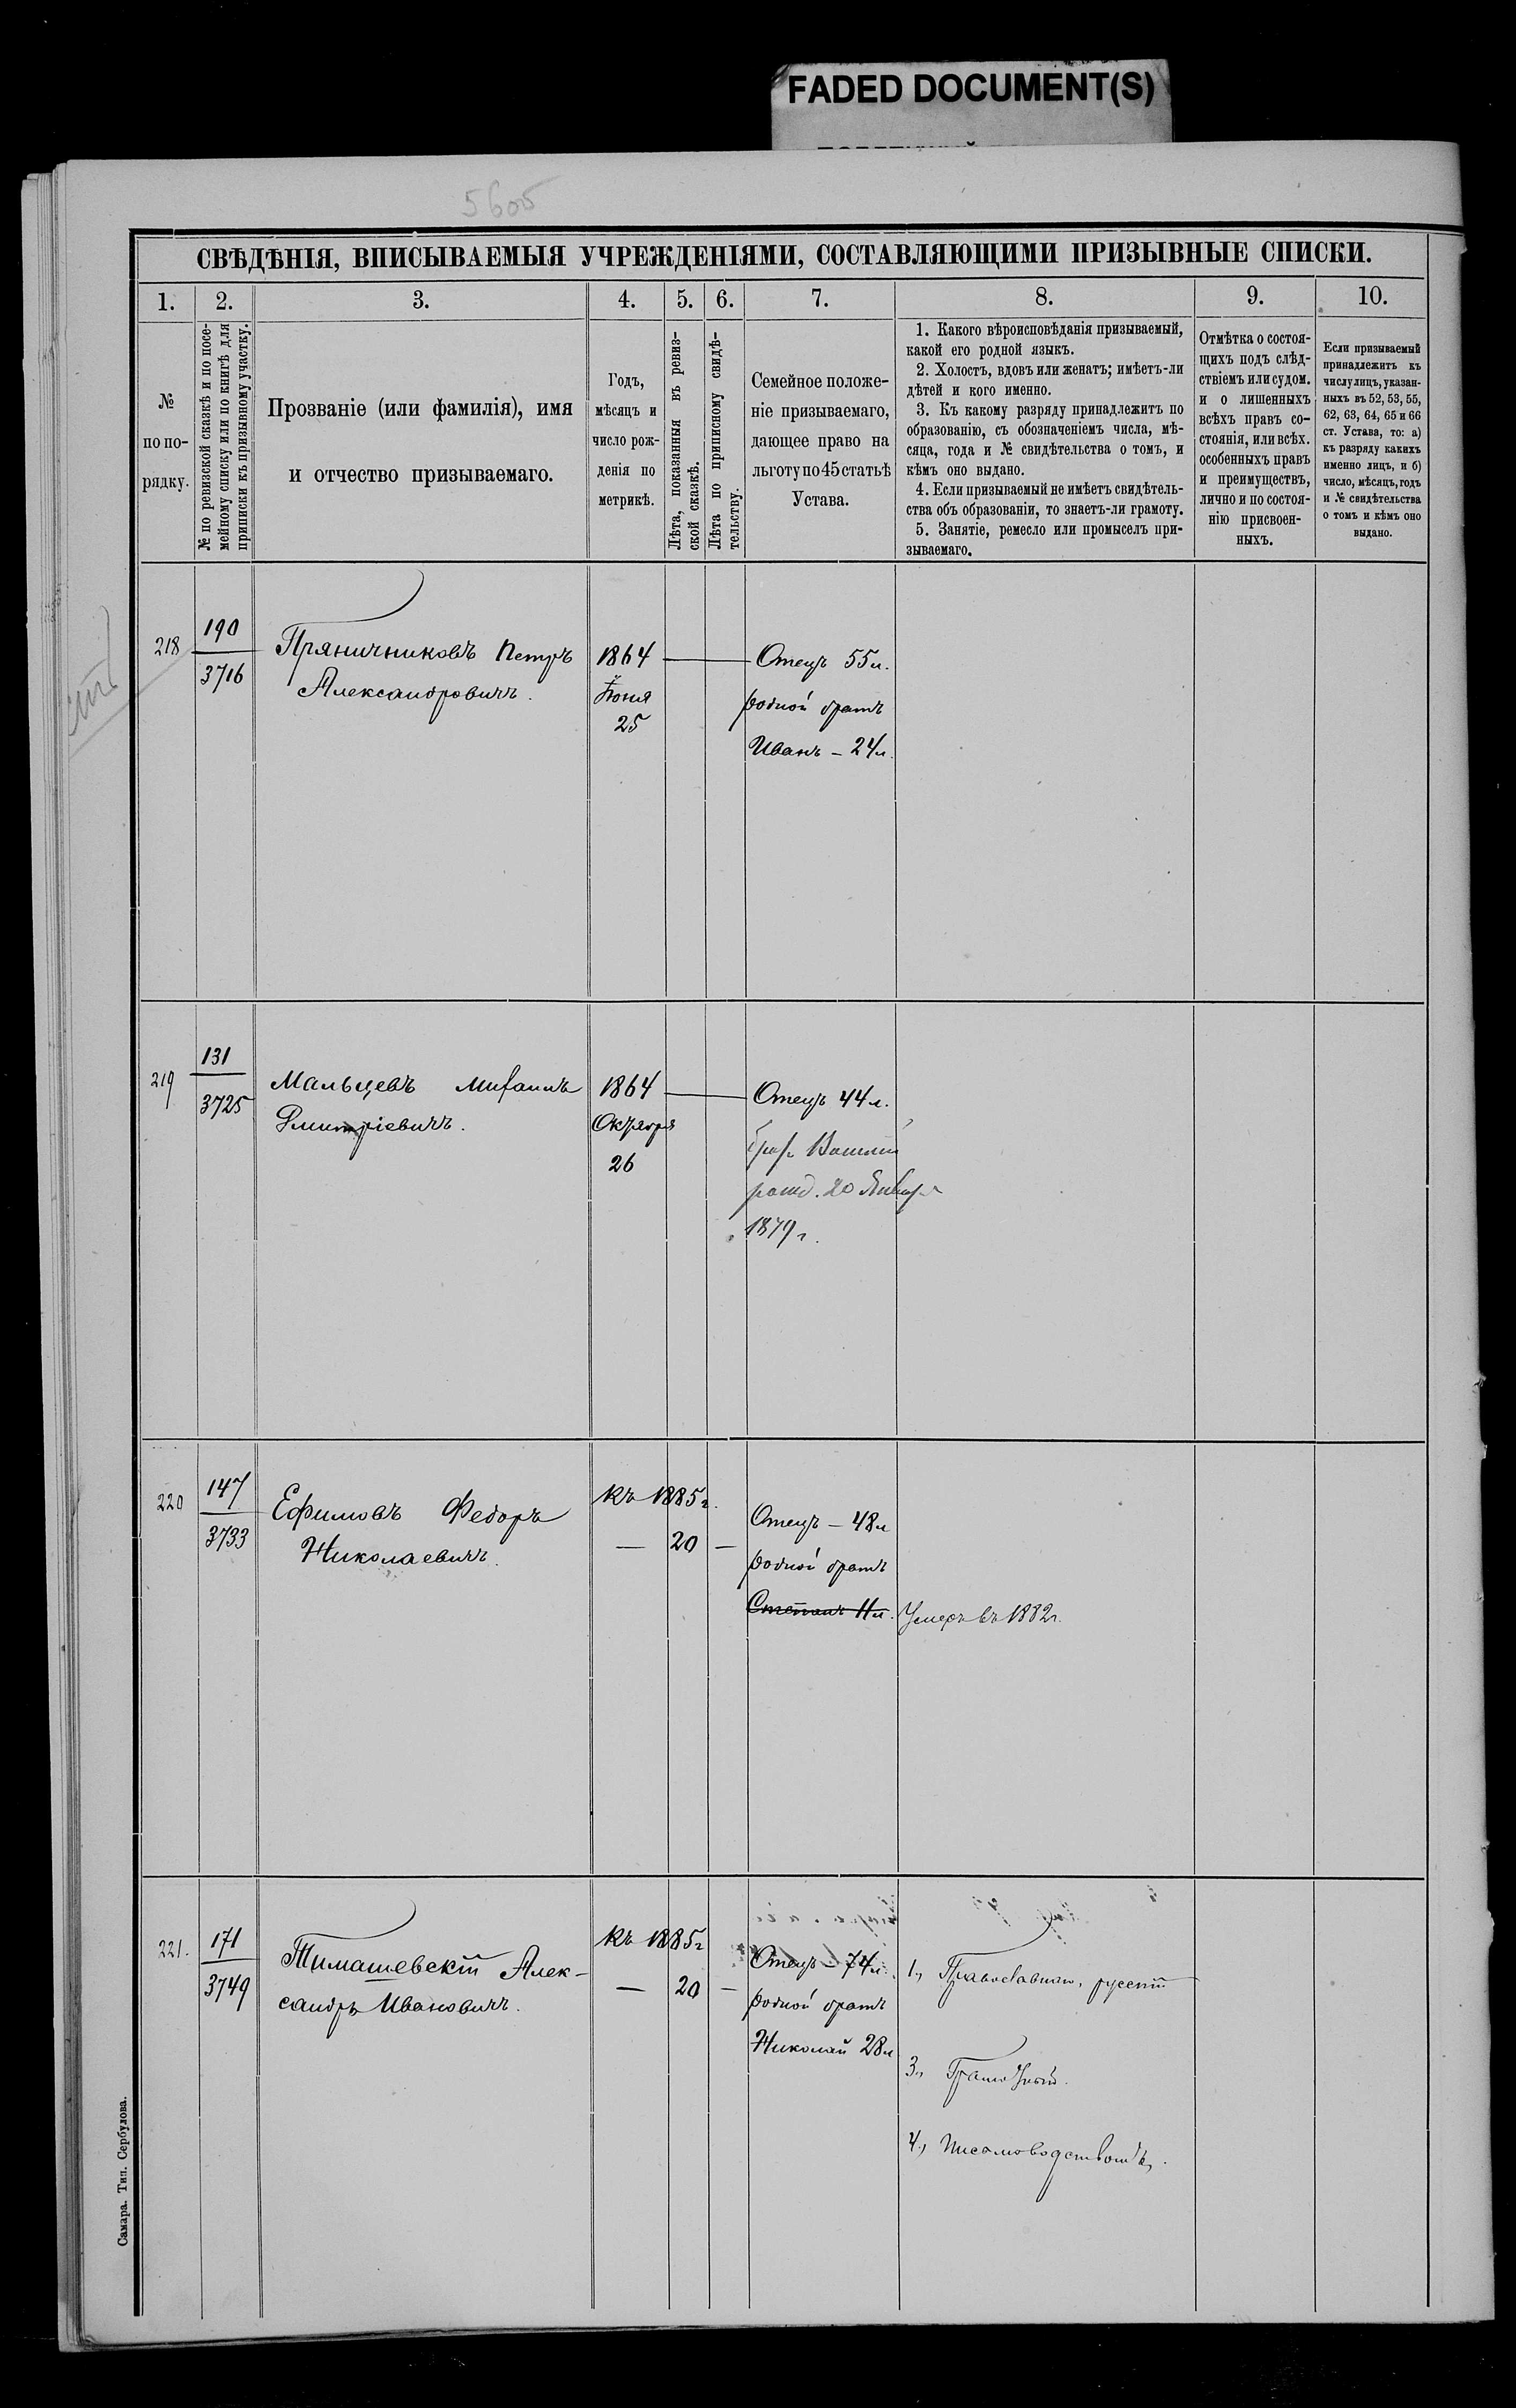 FADED DOCUMENT(S)
5605
СВѢДѢНІЯ, ВПИСЫВАЕМЫЯ УЧРЕЖДЕНІЯМИ, СОСТАВЛЯЮЩИМИ ПРИЗЫВНЫЕ СПИСКИ.
1.
2.
3.
4.
5.
6.
7.
8.
9.
10.
№
по по-
рядку.
№ по ревизской сказкѣ и по посе-
мейному списку или по книгѣ для
приписки къ призывному участку.
Прозваніе (или фамилія), имя
и отчество призываемаго.
Годъ,
мѣсяцъ и
число рож-
денія по
метрикѣ.
Лѣта, показанныя въ ревиз-
ской сказкѣ.
Лѣта по приписному свидѣ-
тельству.
Семейное положе-
ніе призываемаго,
дающее право на
льготу по 45 статьѣ
Устава.
1. Какого вѣроисповѣданія призываемый,
какой его родной языкъ.
2. Холостъ, вдовъ или женатъ; имѣетъ-ли
дѣтей и кого именно.
3. Къ какому разряду принадлежитъ по
образованію, съ обозначеніемъ числа, мѣ-
сяца, года и № свидѣтельства о томъ, и
кѣмъ оно выдано.
4. Если призываемый не имѣетъ свидѣтель-
ства объ образованіи, то знаетъ-ли грамоту.
5. Занятіе, ремесло или промыселъ при-
зываемаго.
Отмѣтка о состоя-
щихъ подъ слѣд-
ствіемъ или судом.
и о лишенныхъ
всѣхъ правъ со-
стоянія, или всѣх.
особенныхъ правъ
и преимуществъ,
лично и по состоя-
нію присвоен-
ныхъ.
Если призываемый
принадлежитъ къ
числу лицъ, указан-
ныхъ въ 52, 53, 55,
62, 63, 64, 65 и 66
ст. Устава, то: а)
къ разряду какихъ
именно лицъ, и б)
число, мѣсяцъ, годъ
и № свидѣтельства
о томъ и кѣмъ оно
выдано.
218
190
3716
Пряничниковъ Петръ
Александровичъ.
1864
Іюня
25
Отецъ 55 л.
родной братъ
Иванъ – 24 л.
219
131
3725
Мальцевъ Михаилъ
Дмитріевичъ.
1864
Октября
26
Отецъ 44 л.
брат Василій
рожд. 20 Января
1879 г.
220
147
3733
Ефимовъ Федоръ
Николаевичъ.
Къ 1885 г.
— 20 —
Отецъ – 48 л
родной братъ
Степанъ 11 л. Умеръ въ 1882 г.
221.
171
3749
Тимашевскій Алек-
сандръ Ивановичъ.
Къ 1885 г
— 20 —
Отецъ – 74 л.
родной братъ
Николай 28 л
1., Православнаго, русскій
3., Грамотный.
4., Писмоводствомъ.
Самара. Тип. Сербулова.